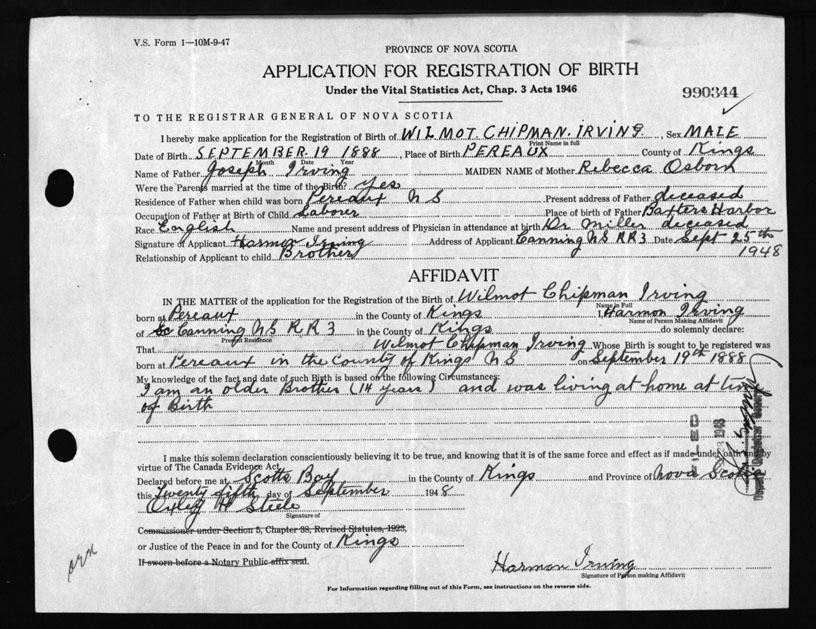 V.S. Form 1—10M-9-47
PROVINCE OF NOVA SCOTIA
APPLICATION FOR REGISTRATION OF BIRTH
Under the Vital Statistics Act, Chap. 3 Acts 1946
990344
TO THE REGISTRAR GENERAL OF NOVA SCOTIA
I hereby make application for the Registration of Birth of WILMOT. CHIPMAN. IRVING, Sex MALE
Print Name in full
Date of Birth SEPTEMBER 19 1888, Place of Birth PEREAUX County of Kings
Month Date Year
Name of Father Joseph Irving MAIDEN NAME of Mother Rebecca Osborn
Were the Parents married at the time of the Birth? Yes
Residence of Father when child was born Pereaux N S Present address of Father deceased
Occupation of Father at Birth of Child Laborer Place of birth of Father Baxters Harbor
Race English Name and present address of Physician in attendance at birth Dr Miller deceased
Signature of Applicant Harmon Irving Address of Applicant Canning N S R R 3 Date Sept 25th
1948
Relationship of Applicant to child Brother
AFFIDAVIT
IN THE MATTER of the application for the Registration of the Birth of Wilmot Chipman Irving
Name in Full
born at Pereaux in the County of Kings I, Harmon Irving
Name of Person Making Affidavit
of Canning N S R R 3 in the County of Kings do solemnly declare:
Present Residence
That Wilmot Chipman Irving Whose Birth is sought to be registered was
born at Pereaux in the County of Kings N S on September 19th 1888
My knowledge of the fact and date of such Birth is based on the following Circumstances:
I am an older Brother (14 years) and was living at home at time
of Birth
I make this solemn declaration conscientiously believing it to be true, and knowing that it is of the same force and effect as if made under oath and by
virtue of The Canada Evidence Act.
Declared before me at Scotts Bay in the County of Kings and Province of Nova Scotia
this Twenty fifth day of September 1948
H Steele
Signature of
Commissioner under Section 5, Chapter 38, Revised Statutes, 1923,
or Justice of the Peace in and for the County of Kings
If sworn before a Notary Public affix seal.
Harmon Irving
Signature of Person making Affidavit
For Information regarding filling out of this Form, see instructions on the reverse side.